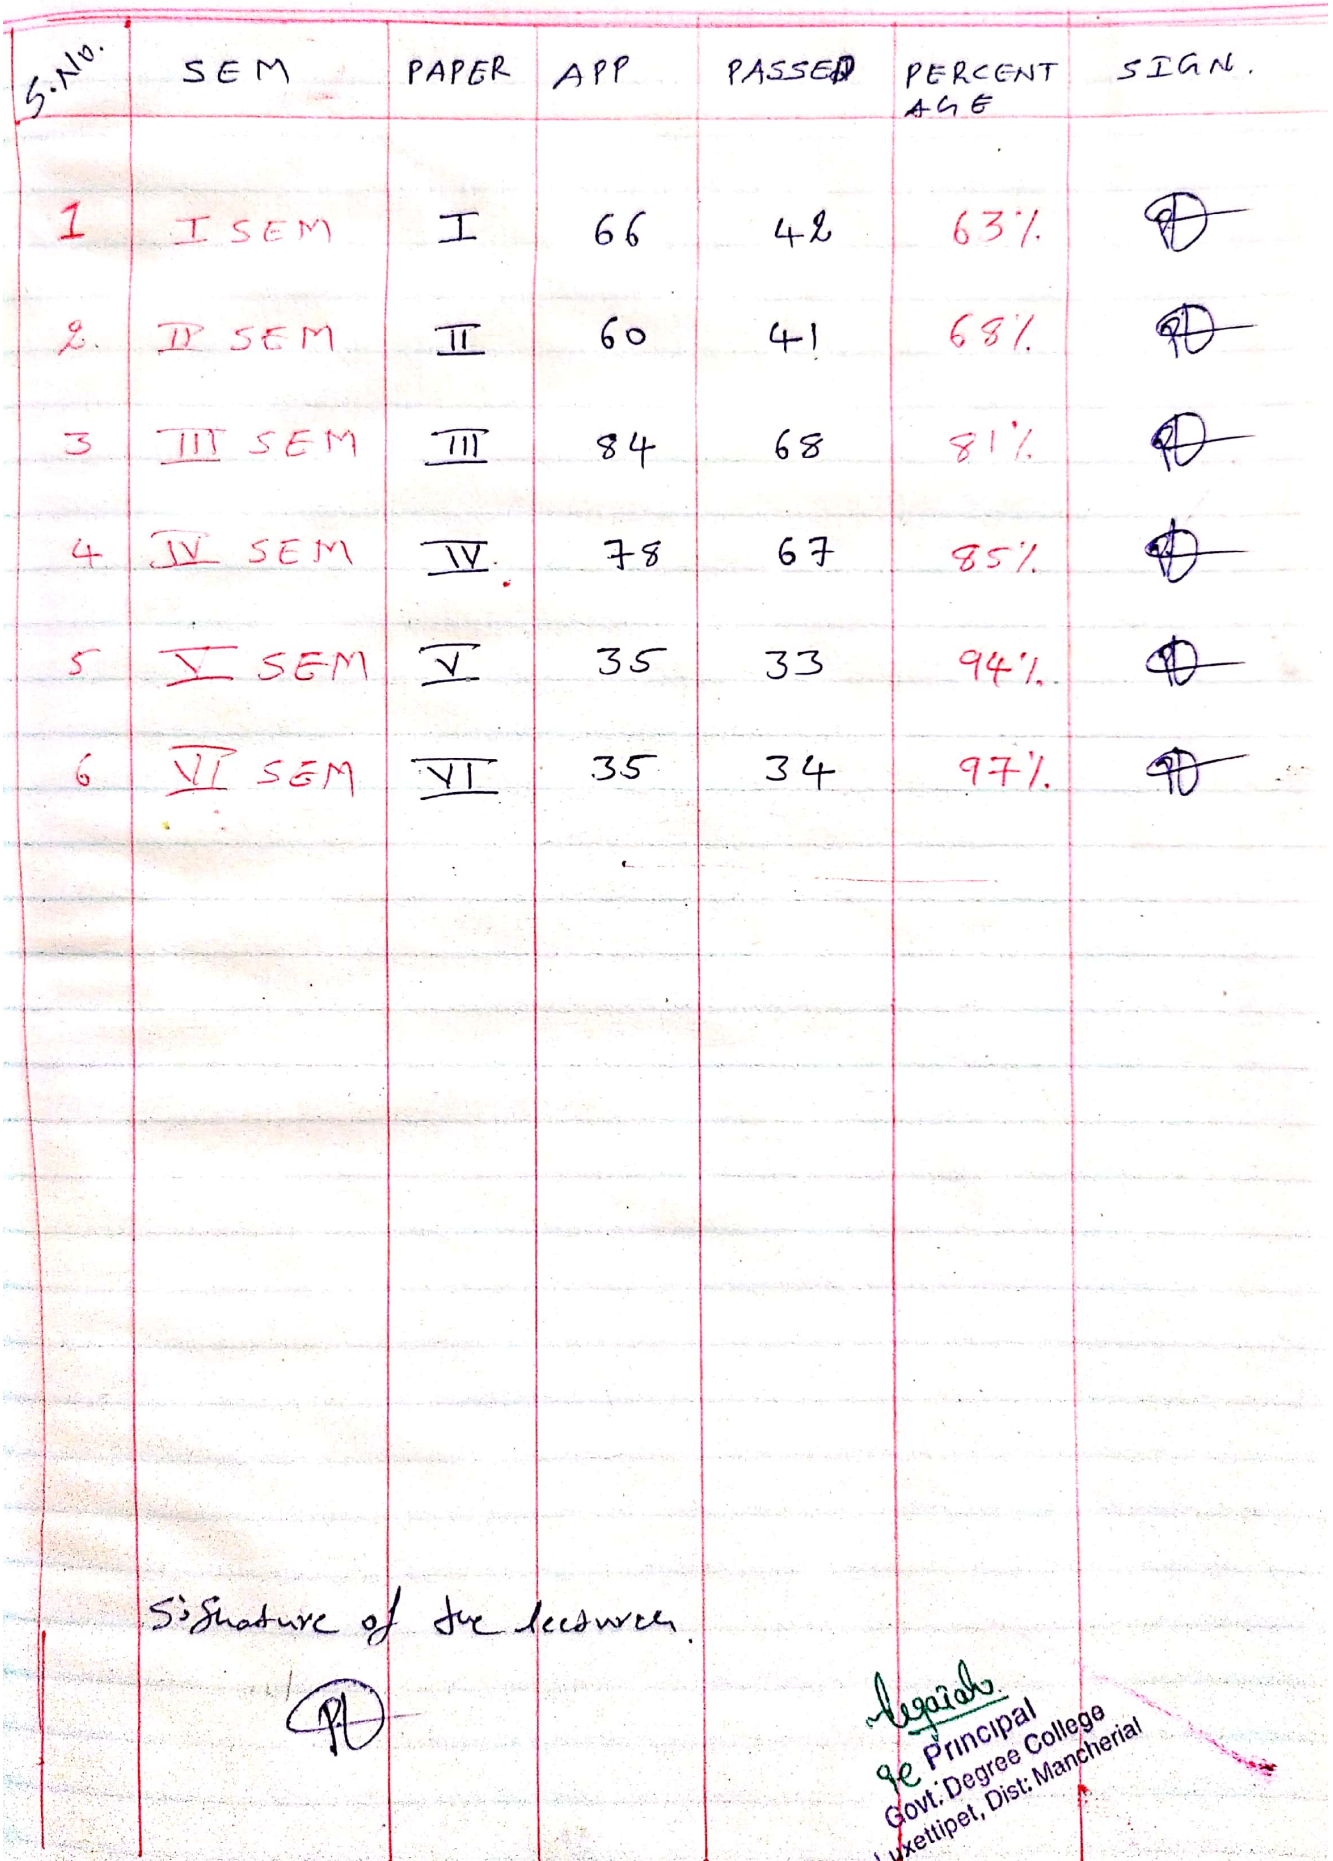 S.No. SEM PAPER APP PASSED PERCENT SIGN.
AGE
1 I SEM I 66 42 63%
2. II SEM II 60 41 68%
3 III SEM III 84 68 81%
4 IV SEM IV. 78 67 85%
5 V SEM V 35 33 94%.
6 VI SEM VI 35 34 97%.
Signature of the lecturer.
Principal
Govt. Degree College
Luxettipet, Dist: Mancherial